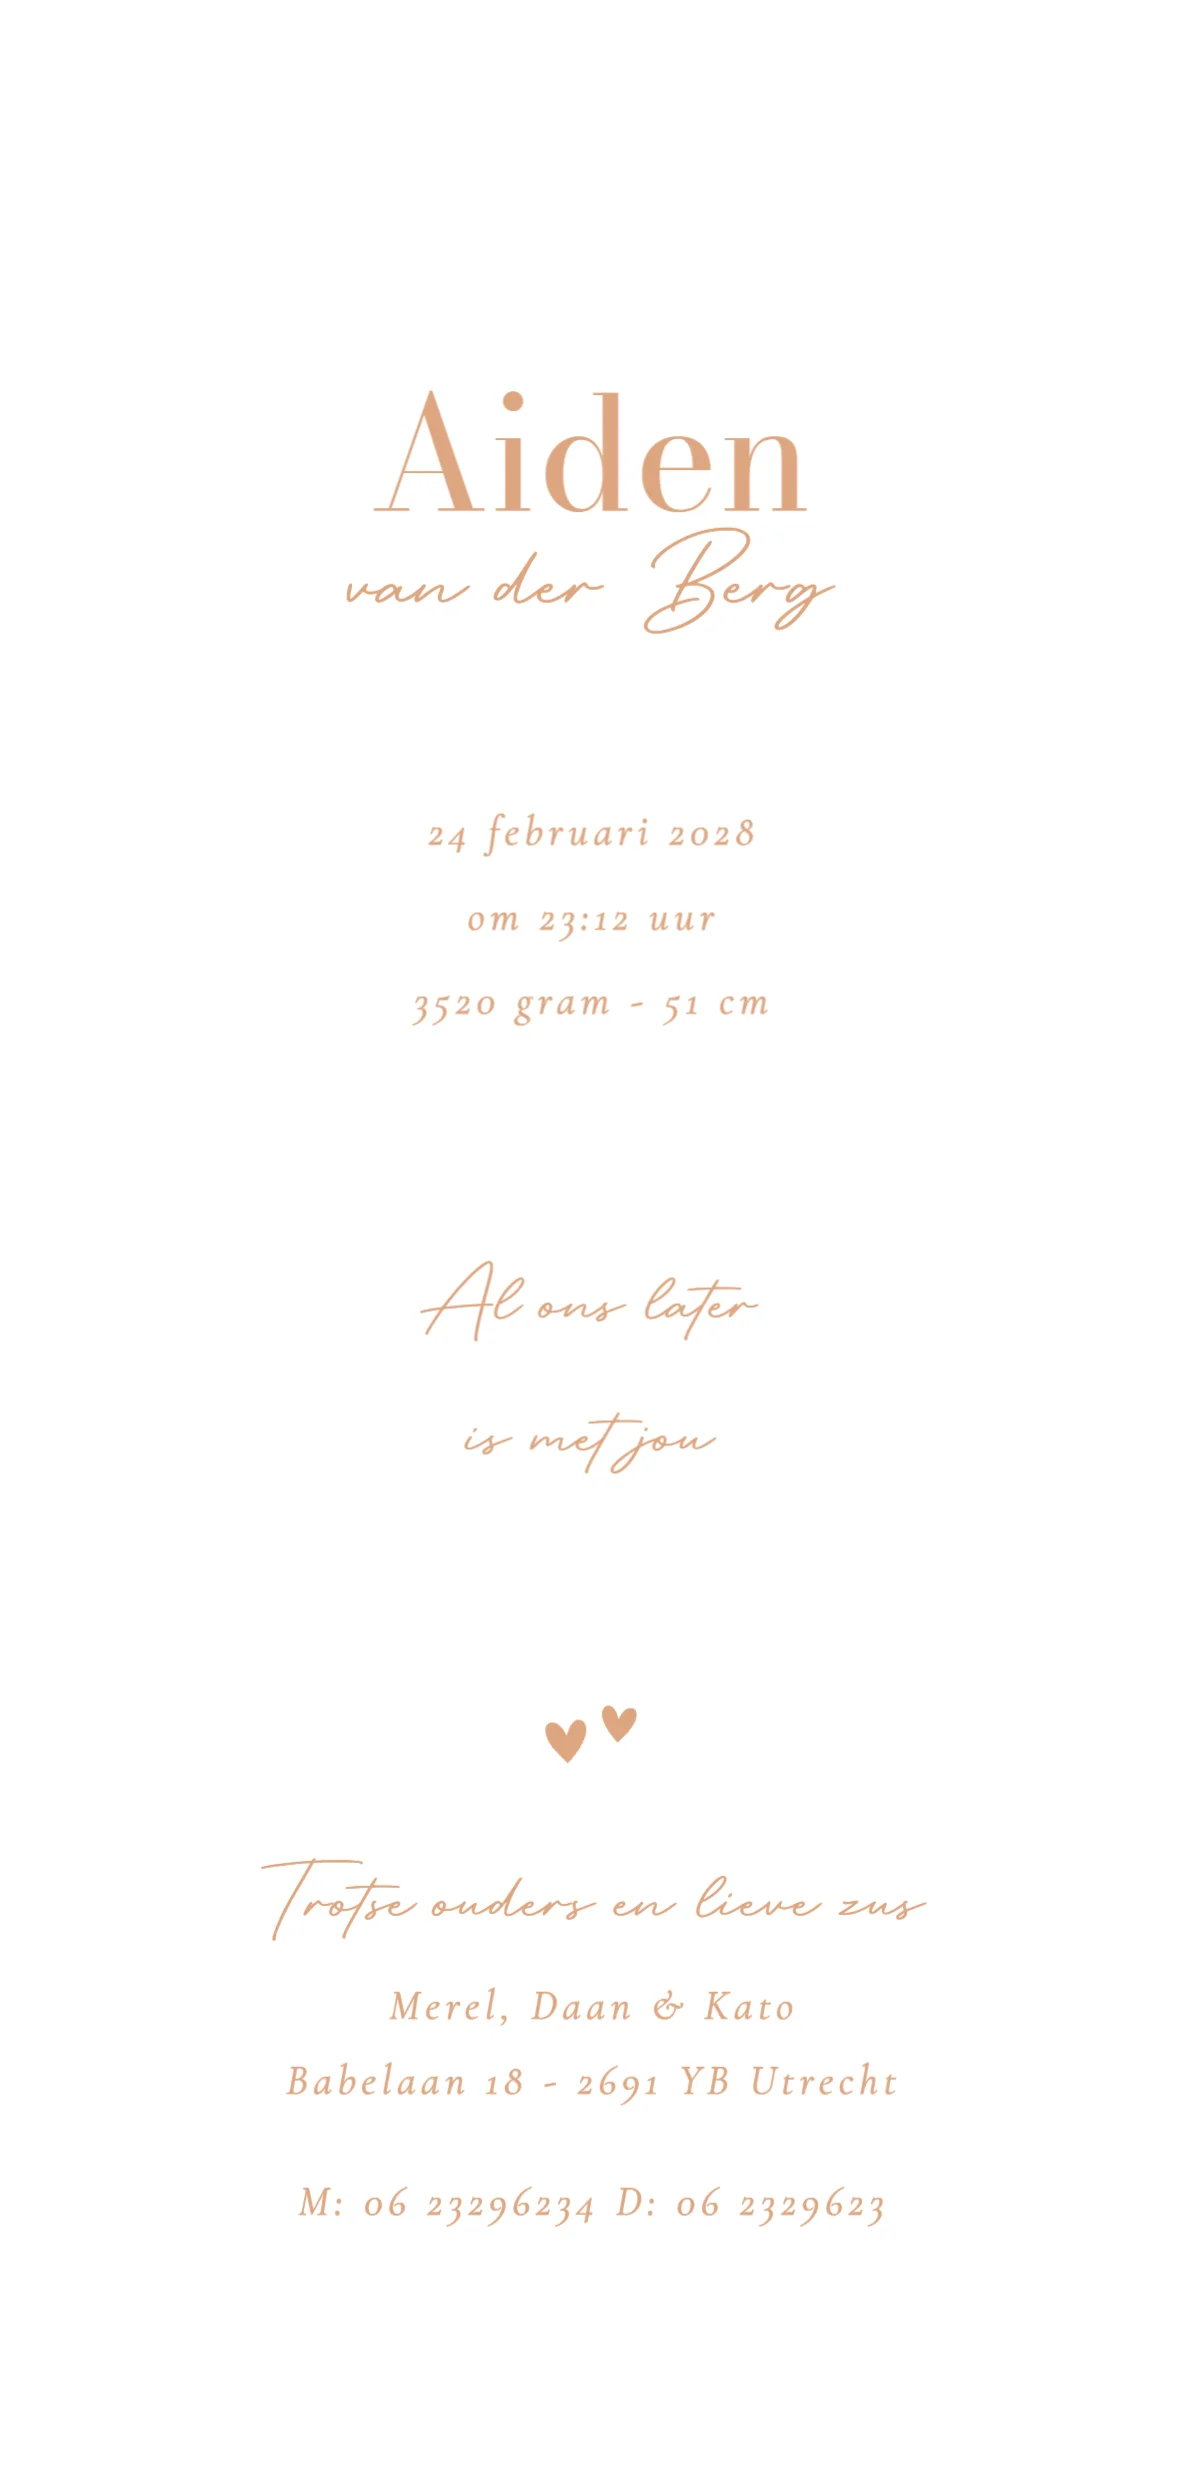 Aiden
van der Berg
24 februari 2028
om 23:12 uur
3520 gram - 51 cm
Al ons later
is met jou
Trotse ouders en lieve zus
Merel, Daan & Kato
Babelaan 18 - 2691 YB Utrecht
M: 06 23296234 D: 06 2329623